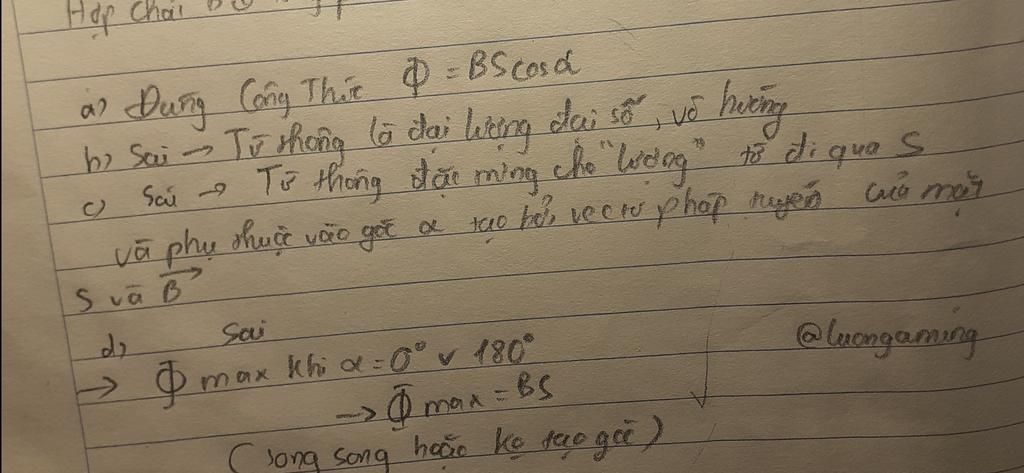 Hợp chất
a) Đúng Công Thức Φ = BScosα
b) Sai → Từ thông là đại lượng đại số, vô hướng
c) Sai → Từ thông đặc trưng cho "lượng" từ đi qua S
và phụ thuộc vào góc α tạo bởi vectơ pháp tuyến của mặt
S và B⃗
d) Sai
→ Φ max khi α = 0° v 180°
@luongaming
→ Φ max = BS
(song song hoặc ko tạo góc)